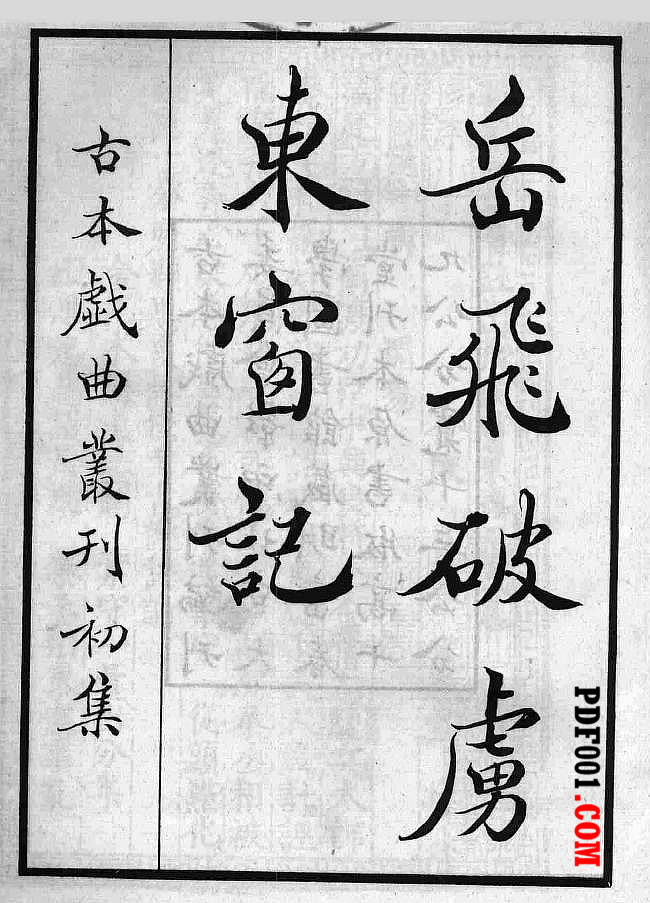 岳飛破虜
東窗記
古本戲曲叢刊初集
PDF001.COM